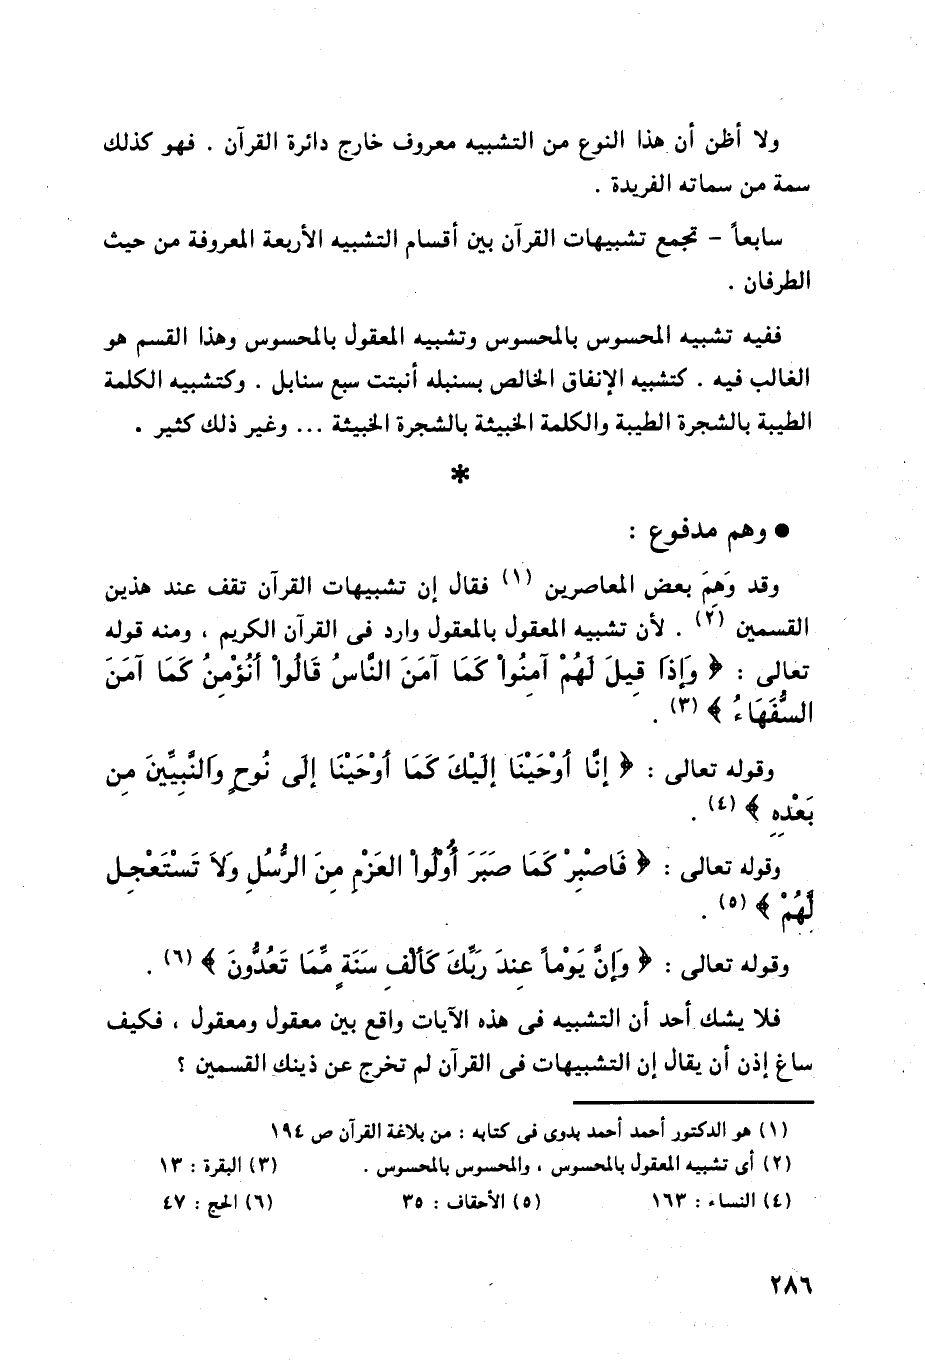 ولا أظن أن هذا النوع من التشبيه معروف خارج دائرة القرآن . فهو كذلك
سمة من سماته الفريدة .
سابعاً – تجمع تشبيهات القرآن بين أقسام التشبيه الأربعة المعروفة من حيث
الطرفان .
ففيه تشبيه المحسوس بالمحسوس وتشبيه المعقول بالمحسوس وهذا القسم هو
الغالب فيه . كتشبيه الإنفاق الخالص بسنبله أنبتت سبع سنابل . وكتشبيه الكلمة
الطيبة بالشجرة الطيبة والكلمة الخبيثة بالشجرة الخبيثة ... وغير ذلك كثير .
*
● وهم مدفوع :
وقد وَهِمَ بعض المعاصرين (١) فقال إن تشبيهات القرآن تقف عند هذين
القسمين (٢) . لأن تشبيه المعقول بالمعقول وارد فى القرآن الكريم ، ومنه قوله
تعالى : ﴿ وَإِذَا قِيلَ لَهُمْ آمِنُواْ كَمَا آمَنَ النَّاسُ قَالُواْ أَنُؤْمِنُ كَمَا آمَنَ
السُّفَهَاءُ ﴾ (٣) .
وقوله تعالى : ﴿ إِنَّا أَوْحَيْنَا إِلَيْكَ كَمَا أَوْحَيْنَا إِلَى نُوحٍ وَالنَّبِيِّينَ مِن
بَعْدِهِ ﴾ (٤) .
وقوله تعالى : ﴿ فَاصْبِرْ كَمَا صَبَرَ أُوْلُواْ العَزْمِ مِنَ الرُّسُلِ وَلَا تَسْتَعْجِل
لَّهُمْ ﴾ (٥) .
وقوله تعالى : ﴿ وَإِنَّ يَوْماً عِندَ رَبِّكَ كَأَلْفِ سَنَةٍ مِّمَا تَعُدُّونَ ﴾ (٦) .
فلا يشك أحد أن التشبيه فى هذه الآيات واقع بين معقول ومعقول ، فكيف
ساغ إذن أن يقال إن التشبيهات فى القرآن لم تخرج عن ذينك القسمين ؟
(١) هو الدكتور أحمد أحمد بدوى فى كتابه : من بلاغة القرآن ص ١٩٤
(٢) أى تشبيه المعقول بالمحسوس ، والمحسوس بالمحسوس . (٣) البقرة : ١٣
(٤) النساء : ١٦٣ (٥) الأحقاف : ٣٥ (٦) الحج : ٤٧
٢٨٦